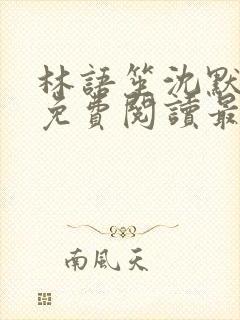 林語笙沈默
免費閱讀最
南風天